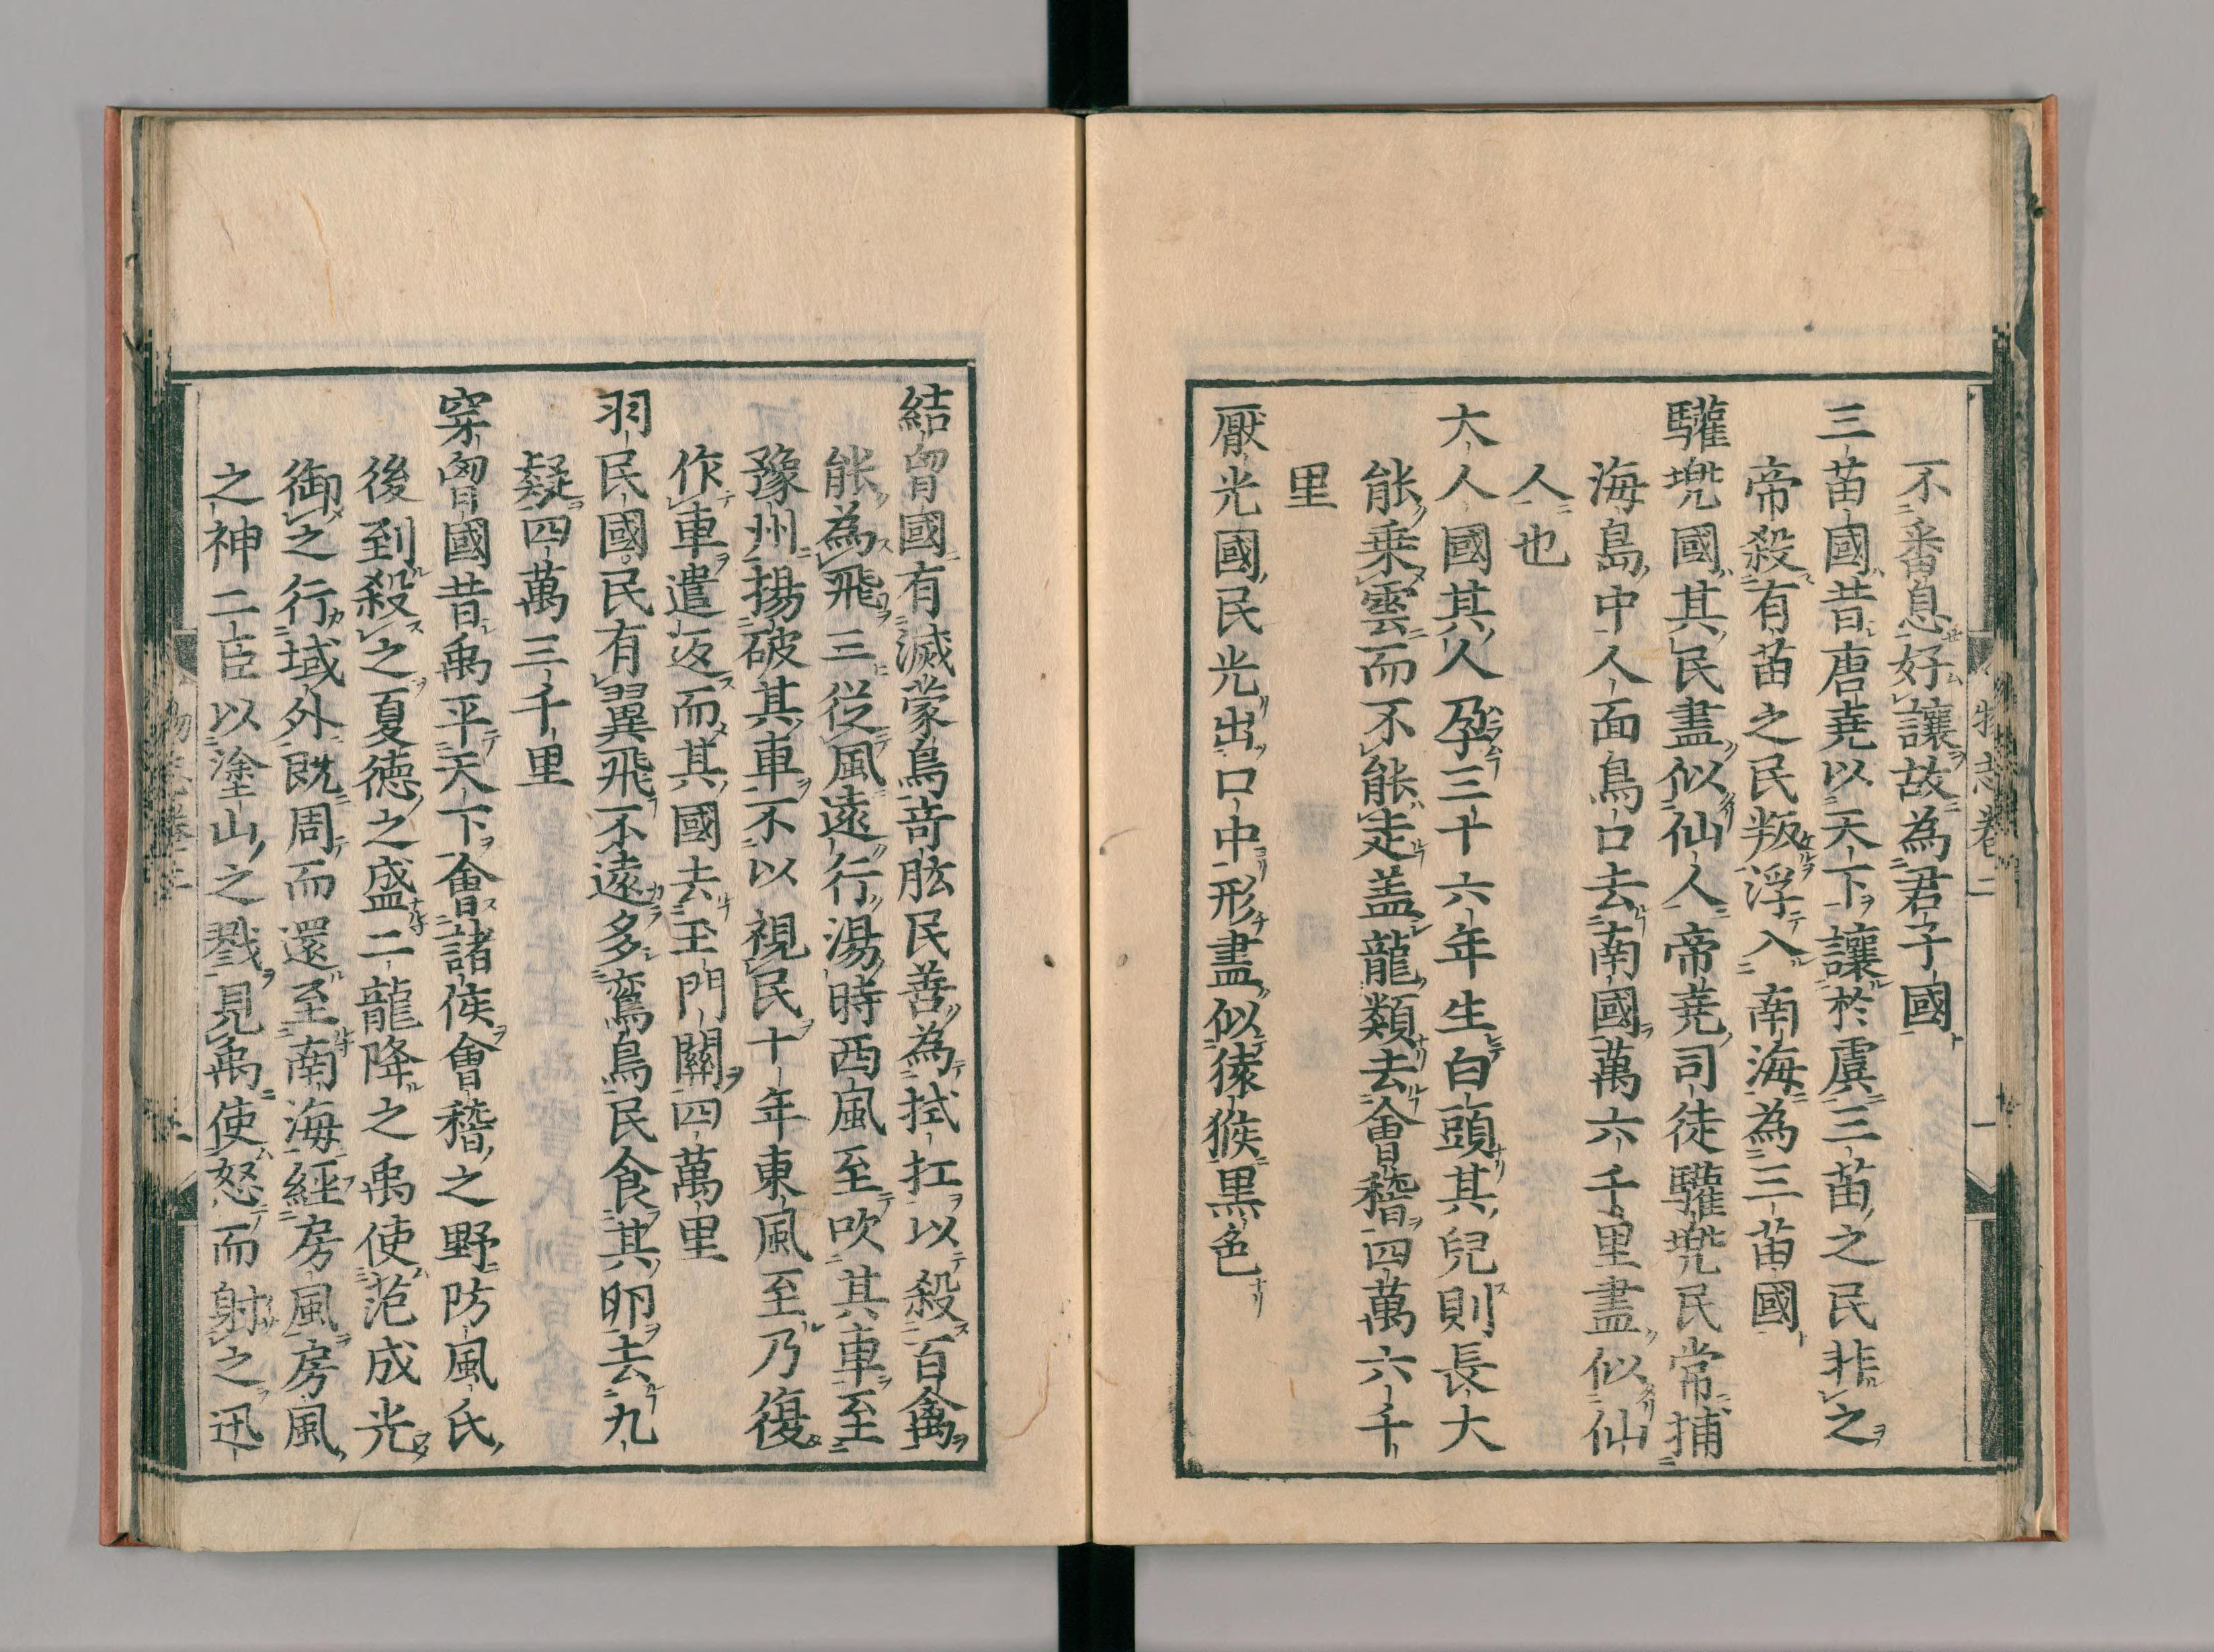 不番息好讓故為君子國
三苗國昔唐堯以天下讓於虞三苗之民非之
帝殺有苗之民叛浮入南海為三苗國
驩兠國其民盡似仙人帝堯司徒驩兠民常捕
海島中人面鳥口去南國萬六千里盡似仙
人也
大人國其人孕三十六年生白頭其兒則長大
能乘雲而不能走盖龍類去會稽四萬六千
里
厭光國民光出口中形盡似猿猴黒色
結胷國有滅蒙鳥竒肱民善為拭扛以殺百禽
能為飛三從風遠行湯時西風至吹其車至
豫州揚破其車不以視民十年東風至乃復
作車遣返而其國去玉門關四萬里
羽民國民有翼飛不遠多鸞鳥民食其卵去九
疑四萬三千里
穿胷國昔禹平天下會諸侯會稽之野防風氏
後到殺之夏德之盛二龍降之禹使范成光
御之行域外既周而還至南海經房風房風
之神二臣以塗山之戮見禹使怒而射之迅